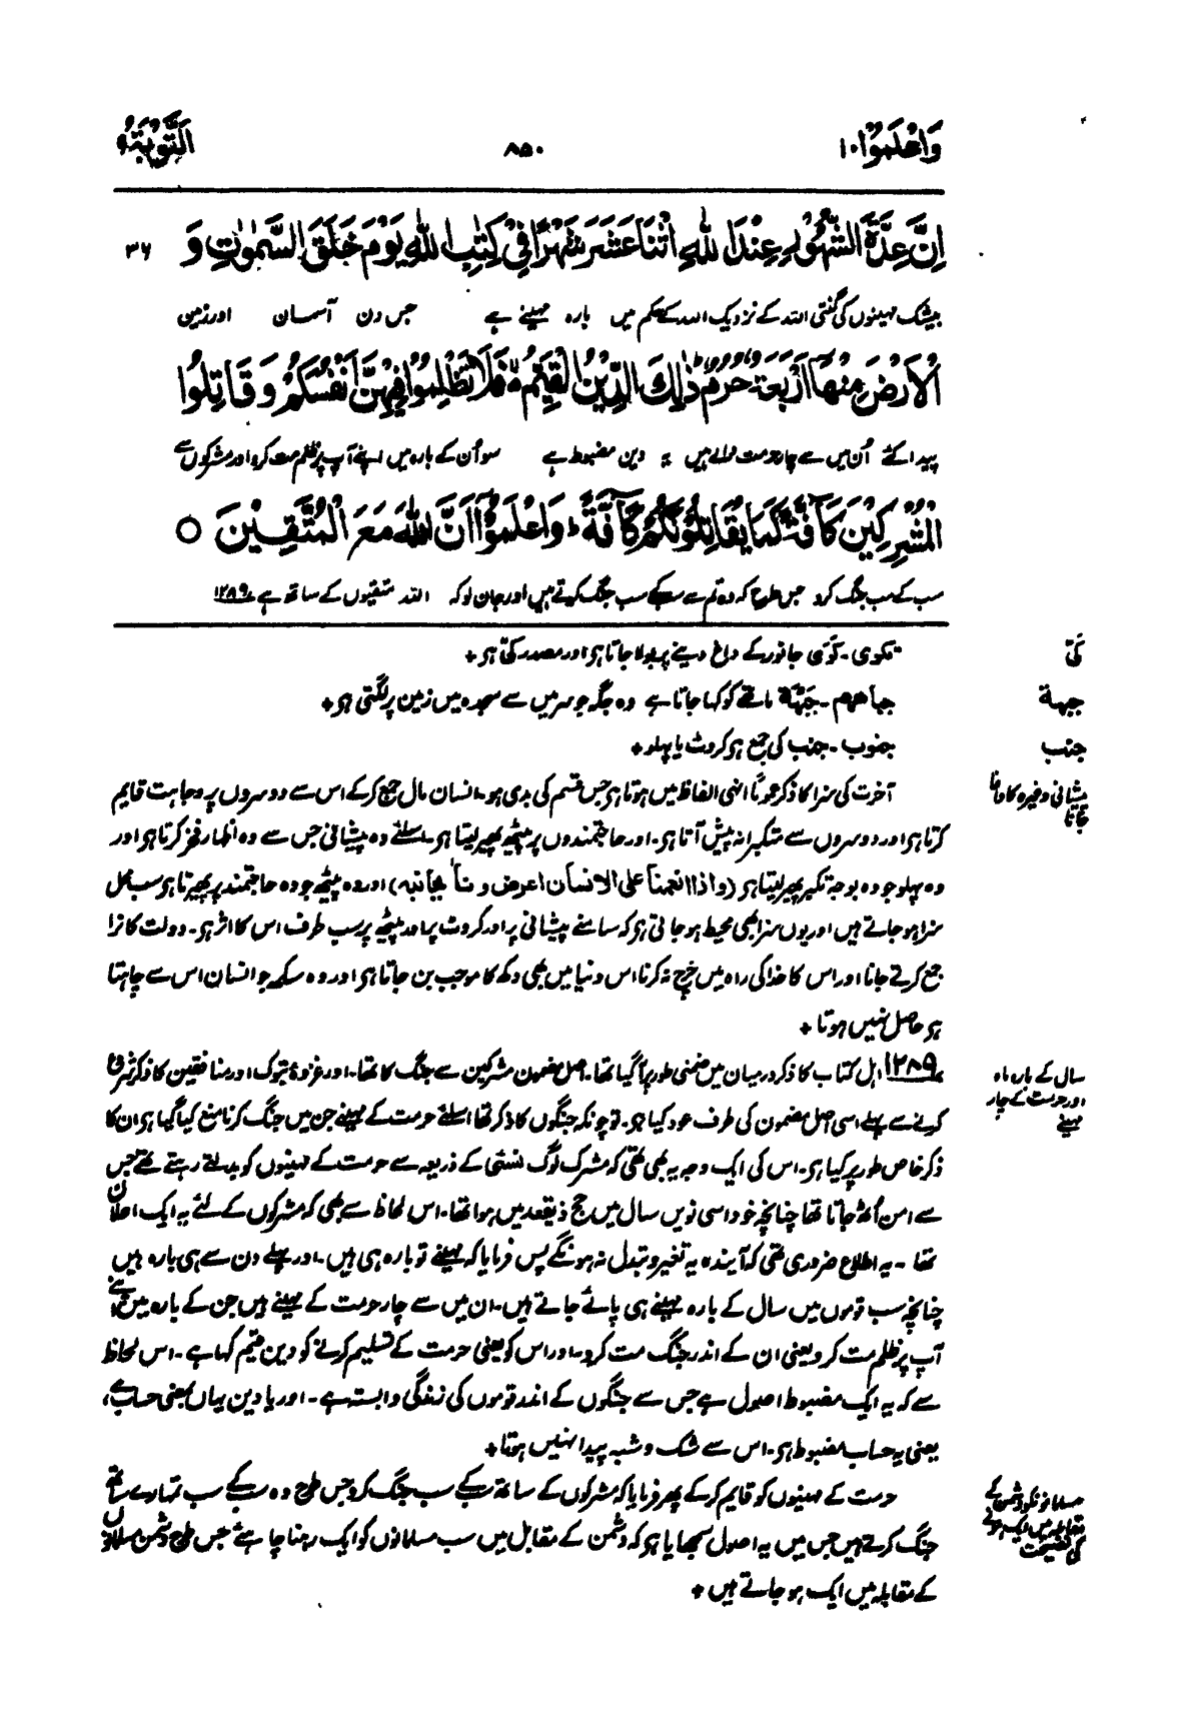 وَاعْلَمُوْا ١٠
٨٥٠
اَلتَّوْبَةُ ٩
اِنَّ عِدَّةَ الشُّهُوْرِ عِنْدَ اللّٰهِ اثْنَا عَشَرَ شَهْرًا فِیْ كِتٰبِ اللّٰهِ یَوْمَ خَلَقَ السَّمٰوٰتِ وَ
٣٦
بیشک مہینوں کی گنتی اللہ کے نزدیک اللہ کے حکم میں بارہ مہینے ہے جس دن آسمان اور زمین
الْاَرْضَ مِنْهَاۤ اَرْبَعَةٌ حُرُمٌ ؕ ذٰلِكَ الدِّیْنُ الْقَیِّمُ ۙ فَلَا تَظْلِمُوْا فِیْهِنَّ اَنْفُسَكُمْ وَ قَاتِلُوا
پیدا کئے اُن میں سے چار حرمت والے ہیں یہ دین مضبوط ہے سو اُن کے بارہ میں اپنے آپ پر ظلم مت کرو اور مشرکوں سے
الْمُشْرِكِیْنَ كَآفَّةً كَمَا یُقَاتِلُوْنَكُمْ كَآفَّةً ؕ وَاعْلَمُوْۤا اَنَّ اللّٰهَ مَعَ الْمُتَّقِیْنَ ○
سب کے سب جنگ کرو جس طرح کہ وہ تم سے سب کے سب جنگ کرتے ہیں اور جان لو کہ اللہ متقیوں کے ساتھ ہے ۱۲۸۹
کَیّ
تکوی۔ کَوَی جانور کے داغ دینے پر بولا جاتا ہو اور مصدر کیّ ہو +
جبهة
جباههم۔ جَبْهَة ماتھے کو کہا جاتا ہے وہ جگہ جو سر میں سے سجدہ میں زمین پر لگتی ہو +
جنب
جنوب۔ جنب کی جمع ہو کروٹ یا پہلو +
پیشانی وغیرہ کا داغا جانا
آخرت کی سزا کا ذکر عموماً انہی الفاظ میں ہوتا ہو جس قسم کی بدی ہو۔ انسان مال جمع کرکے اس سے دوسروں پر وجاہت قایم
کرتا ہو اور دوسروں سے متکبرانہ پیش آتا ہو۔ اور حاجتمندوں پر پیٹھ پھیر لیتا ہو۔ اسلئے وہ پیشانی جس سے وہ اظہار فخر کرتا ہو اور
وہ پہلو جو وہ بوجہ تکبر پھیر لیتا ہو (واذا انعمنا علی الانسان اعرض ونأ بجانبه) اور وہ پیٹھ جو وہ حاجتمند پر پھیرتا ہو سب محل
سزا ہو جاتے ہیں اور یوں سزا بھی محیط ہو جاتی ہو کہ سامنے پیشانی پر اور کروٹ پر اور پیٹھ پر سب طرف اس کا اثر ہو۔ دولت کا نرا
جمع کرتے جانا اور اس کا خدا کی راہ میں خرچ نہ کرنا اس دنیا میں بھی دکھ کا موجب بن جاتا ہو اور وہ سکھ جو انسان اس سے چاہتا
ہو حاصل نہیں ہوتا +
سال کے بارہ ماہ اور حرمت کے چار مہینے
۱۲۸۹ اہل کتاب کا ذکر درمیان میں ضمنی طور پر آگیا تھا۔ اصل مضمون مشرکین سے جنگ کا تھا۔ اور غزوۂ تبوک اور منافقین کا ذکر شروع
کرنے سے پہلے اسی اصل مضمون کی طرف عود کیا ہو۔ تو چونکہ جنگوں کا ذکر تھا اسلئے حرمت کے مہینے جن میں جنگ کرنا منع کیا گیا ہو ان کا
ذکر خاص طور پر کیا ہو۔ اس کی ایک وجہ یہ بھی تھی کہ مشرک لوگ نسئی کے ذریعہ سے حرمت کے مہینوں کو بدلتے رہتے تھے جس
سے امن اُٹھ جاتا تھا چنانچہ خود اسی نویں سال میں حج ذیقعد میں ہوا تھا۔ اس لحاظ سے بھی کہ مشرکوں کے لئے یہ ایک اعلان
تھا۔ یہ اطلاع ضروری تھی کہ آیندہ یہ تغیر و تبدل نہ ہونگے پس فرمایا کہ مہینے تو بارہ ہی ہیں۔ اور پہلے دن سے ہی بارہ ہیں
چنانچہ سب قوموں میں سال کے بارہ مہینے ہی پائے جاتے ہیں۔ ان میں سے چار حرمت کے مہینے ہیں جن کے بارہ میں اپنے
آپ پر ظلم مت کرو یعنی ان کے اندر جنگ مت کرو۔ اور اس کو یعنی حرمت کے تسلیم کرنے کو دین قیم کہا ہے۔ اس لحاظ
سے کہ یہ ایک مضبوط اصول ہے جس سے جنگوں کے اندر قوموں کی زندگی وابستہ ہے۔ اور یا دین یہاں بمعنی حساب ہے،
یعنی یہ حساب مضبوط ہو۔ اس سے شک و شبہ پیدا نہیں ہوتا +
مسلمانوں کو دشمن کے مقابلہ میں ایک ہونے کی نصیحت
حرمت کے مہینوں کو قایم کرکے پھر فرمایا کہ مشرکوں کے ساتھ سب کے سب جنگ کرو جس طرح وہ سب کے سب تمہارے ساتھ
جنگ کرتے ہیں جس میں یہ اصول سمجھایا ہو کہ دشمن کے مقابل میں سب مسلمانوں کو ایک رہنا چاہئے جس طرح دشمن مسلمانوں
کے مقابلہ میں ایک ہو جاتے ہیں +